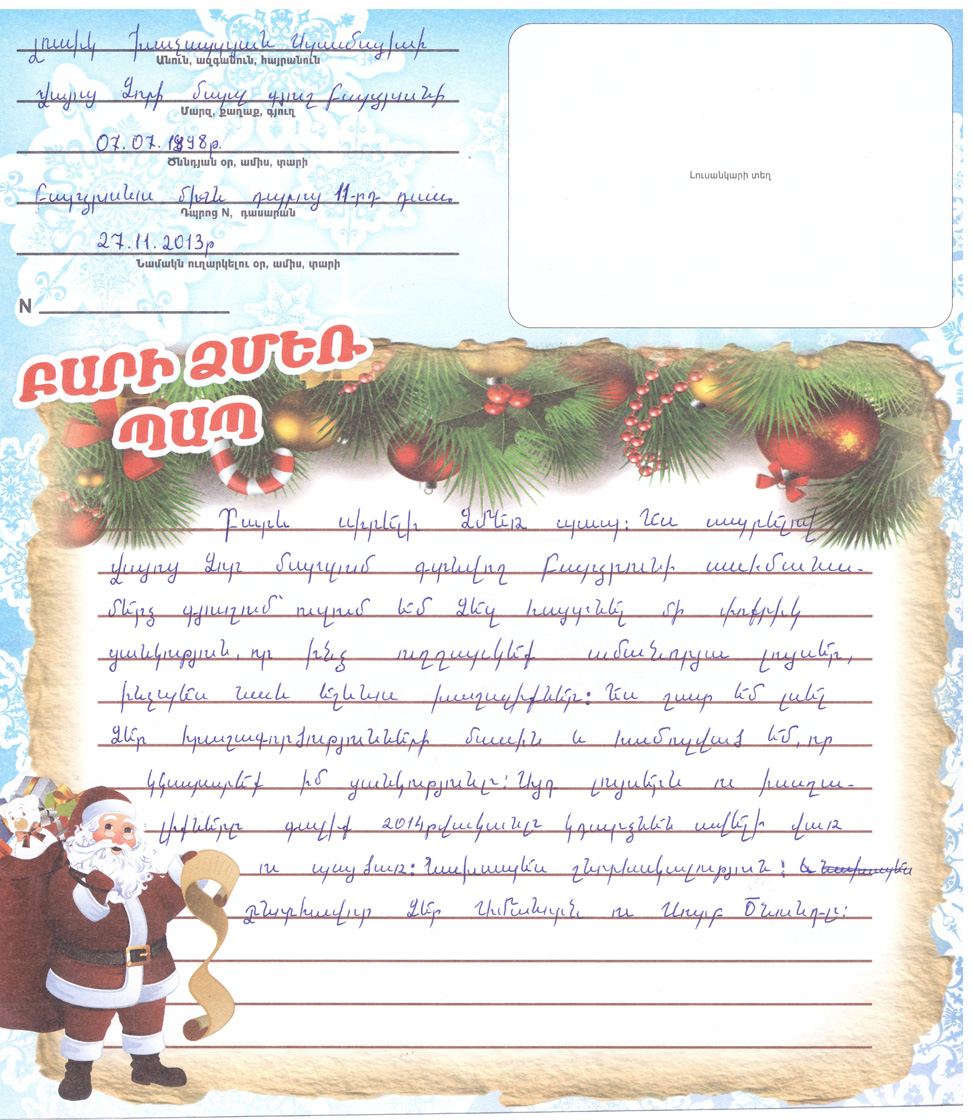 Լուսիկ Խաչատրյան Արամայիսի
Անուն, ազգանուն, հայրանուն
Վայոց Ձորի մարզ գյուղ Բարձրունի
Մարզ, քաղաք, գյուղ
07.07.1998թ.
Ծննդյան օր, ամիս, տարի
Բարձրունու միջն դպրոց 11-րդ դաս.
Դպրոց N, դասարան
27.11.2013թ
Նամակն ուղարկելու օր, ամիս, տարի
N
Լուսանկարի տեղ
ԲԱՐԻ ՁՄԵՌ
ՊԱՊ
Բարև սիրելի Ձմեռ պապ: Ես ապրելով
Վայոց Ձոր մարզում գտնվող Բարձրունի սահմանա-
մերձ գյուղում՝ ուզում եմ Ձեզ հայտնել մի փոքրիկ
ցանկություն, որ ինձ ուղղարկեք ամանորյա լույսեր,
ինչպես նաև եղևնու խաղալիքներ: Ես շատ եմ լսել
Ձեր հրաշագործությունների մասին և համոզված եմ, որ
կկատարեք իմ ցանկությունը: Այդ լույսերն ու խաղա-
լիքները գալիք 2014թվականը կդարձնեն ավելի վառ
ու պայծառ: Նախապես շնորհակալություն: և նախապես
Շնորհավոր Ձեր Ամանորն ու Սուրբ Ծնունդը: